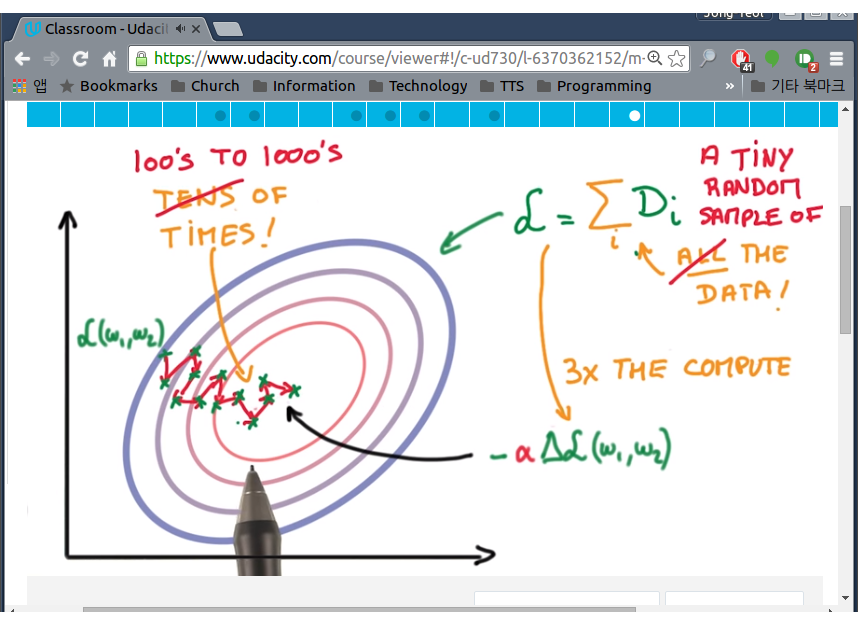 Jong Yeol
Classroom - Udaci
https://www.udacity.com/course/viewer#!/c-ud730/l-6370362152/m-
41
2
앱
Bookmarks
Church
Information
Technology
TTS
Programming
»
기타 북마크
100'S TO 1000'S
TENS OF
TIMES!
ℒ = Σ Di
i
A TINY
RANDOM
SAMPLE OF
ALL THE
DATA!
ℒ(ω₁,ω₂)
3X THE COMPUTE
-α Δℒ(ω₁,ω₂)